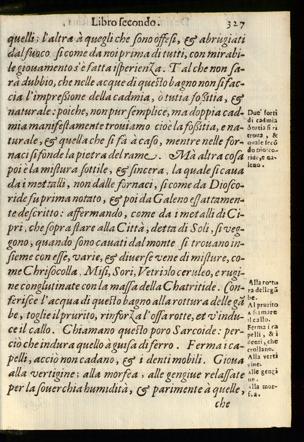 Libro secondo. 327
quelli; l'altra à quegli che sono offesi, & abrugiati
dal fuoco si come da noi prima di tutti, con mirabi-
le giouamento s'è fatta isperienza. Tal che non sa-
rà dubbio, che nelle acque di questo bagno non si fac-
cia l'impressione della cadmia, ò tutia fossitia, &
naturale: poiche, non pur semplice, ma doppia cad
mia manifestamente trouiamo cioè la fossitia, e na-
turale, & quella che si fà à caso, mentre nelle for-
naci si fonde la pietra del rame. Mà altra cosa
poi è la mistura sottile, & sincera, la quale si caua
da i metalli, non dalle fornaci, si come da Diosco-
ride fu prima notato, & poi da Galeno essattamen-
te descritto: affermando, come da i metalli di Ci-
pri, che soprastare alla Città, detta di Soli, si veg-
gono, quando sono cauati dal monte si trouano in-
sieme con esse, varie, & diuerse vene di misture, co-
me Chrisocolla. Misi, Sori, Vetriolo ceruleo, e rugi-
ne conglutinate con la massa della Chatritide. Con-
ferisce l'acqua di questo bagno alla rottura delle gã
be, toglie il prurito, rinforza l'ossa rotte, et v'indu-
ce il callo. Chiamano questo poro Sarcoide: per-
cio che indura quello à guisa di ferro. Ferma i ca-
pelli, acciò non cadano, & i denti mobili. Gioua
alla vertigine; alla morfea, alle gengiue relassate
per la souerchia humidità, & parimente à quelle,
che
Due' sorti
di cadmia
Alla rottu
ra delle gã
be.
Al prurito
Ferma i ca
pelli, & i
denti, che
crollano.
Alla verti
gine.
Alle gengi
ue.
Alla mor-
fea.